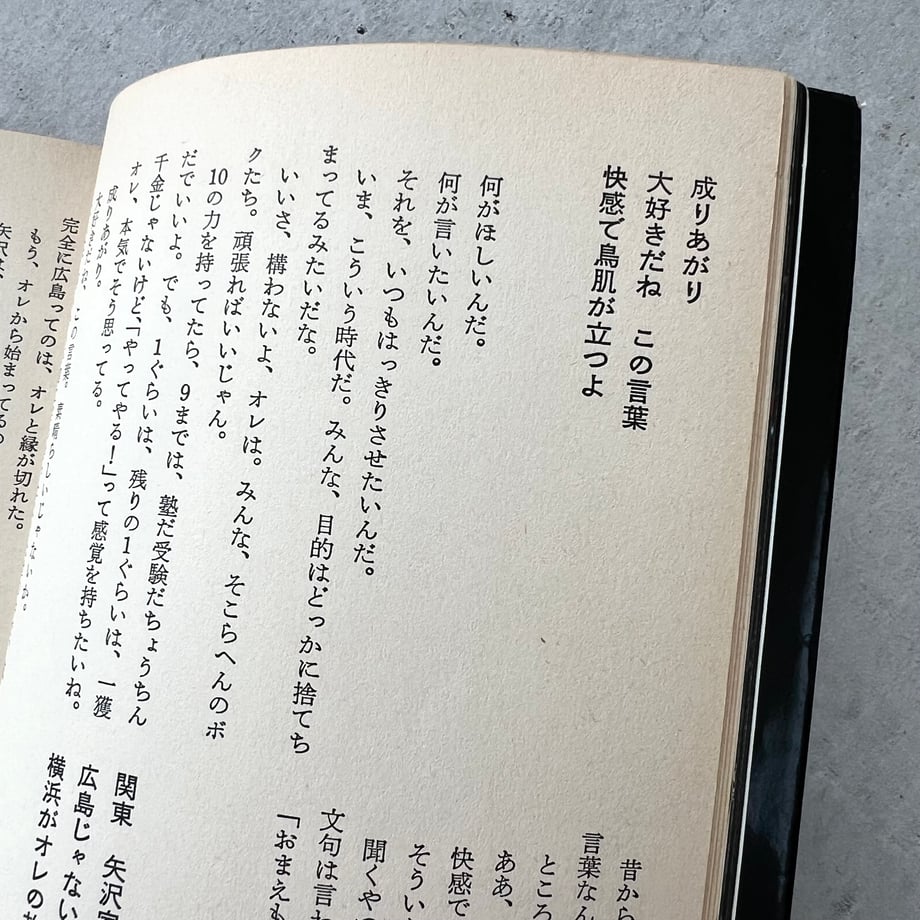 成りあがり
大好きだね この言葉
快感で鳥肌が立つよ
何がほしいんだ。
何が言いたいんだ。
それを、いつもはっきりさせたいんだ。
いま、こういう時代だ。みんな、目的はどっかに捨てち
まってるみたいだな。
いいさ、構わないよ、オレは。みんな、そこらへんのボ
クたち。頑張ればいいじゃん。
10の力を持ってたら、9までは、塾だ受験だちょうちん
だでいいよ。でも、1ぐらいは、残りの1ぐらいは、一獲
千金じゃないけど、「やってやる!」って感覚を持ちたいね。
オレ、本気でそう思ってる。
成りあがり。
大好きだね、この言葉。素晴らしいじゃないか。
昔から
言葉なん
ところ
ああ、
快感で
そうい
聞くや
文句は言わ
「おまえも
関東 矢沢
広島じゃない
横浜がオレの
完全に広島ってのは、オレと縁が切れた。
もう、オレから始まってるの
矢沢は、